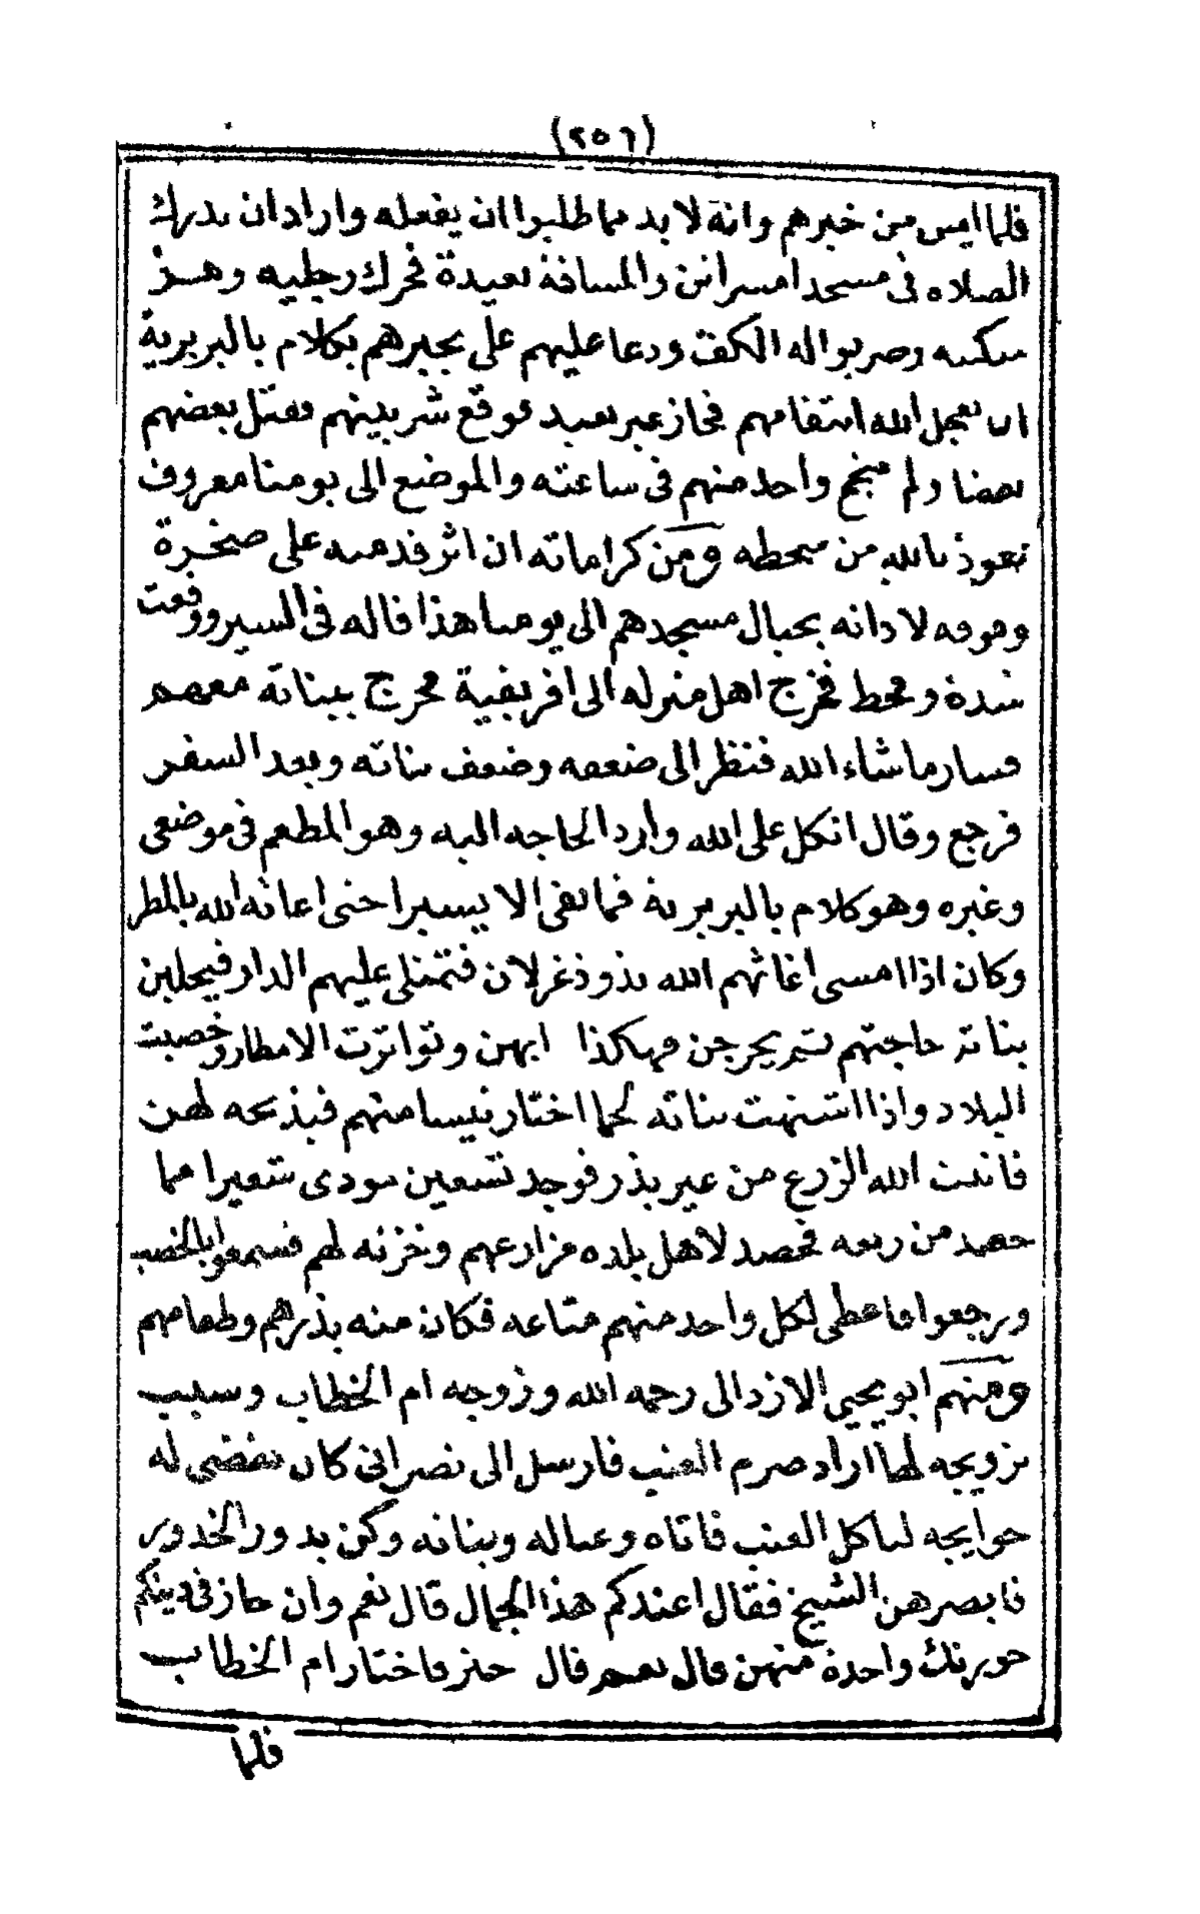 (٢٥٦)
فلما ايس من خيرهم وانه لا بد مما طلبوا ان يفعله واراد ان يدرك
الصلاه فى مسجد امسراتن والمسافة بعيدة فحرك رجليه وهز
منكبيه وضربوا له الكف ودعا عليهم على بجبرهم بكلام بالبربرية
ان يعجل الله انتقامهم فجاز غير بعيد فوقع شر بينهم فقتل بعضهم
بعضا ولم ينج واحد منهم فى ساعته والموضع الى يومنا معروف
نعوذ بالله من سخطه ومن كراماته ان اثر قدميه على صخرة
وقوفه لاذانه بحيال مسجدهم الى يومنا هذا قاله فى السير ووقعت
شدة وقحط فخرج اهل منزله الى افريقية فخرج ببناته معهم
فسار ما شاء الله فنظر الى ضعفه وضعف بناته وبعد السفر
فرجع وقال اتكل على الله وارد الحاجه اليه وهو المطعم فى موضعى
وغيره وهو كلام بالبربرية فما بقى الا يسيرا حتى اغاثه الله بالمطر
وكان اذا امسى اغاثهم الله بذوذ غزلان فتمتلى عليهم الدار فيحلبن
بناته حاجتهم ثم يخرجن فهكذا ابهن وتواترت الامطار وخصبت
البلاد واذا اشتهت بناته لحما اختار تيسا منهم فيذبحه لهن
فانبت الله الزرع من غير بذر فوجد تسعين مودى شعيرا مما
حصد من ربعه فحصد لاهل بلده مزارعهم وخزنه لهم فسمعوا بالخصب
ورجعوا فاعطى لكل واحد منهم متاعه فكان منه بذرهم وطعامهم
ومنهم ابو يحيى الازدالى رحمه الله وزوجه ام الخطاب وسبب
تزويجه لها اراد صرم العنب فارسل الى نصرانى كان يقضى له
حوايجه لياكل العنب فاتاه وعياله وبناته وكن بدور الخدور
فابصرهن الشيخ فقال اعندكم هذا الجمال قال نعم وان جاز فى دينكم
جوزتك واحدة منهن قال نعم قال فاختار ام الخطاب
فلما